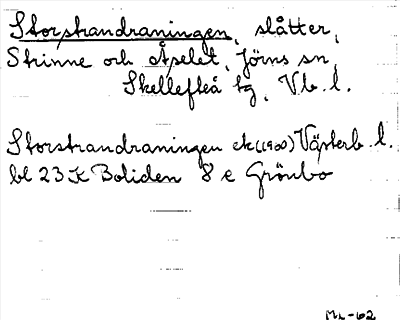 Storstrandraningen, slåtter,
Strinne och Åselet, Jörns sn,
Skellefteå tg, Vb. l.
Storstrandraningen ek (1900) Västerb. l.
bl 23 K Boliden 8 e Grönbo
ML-62